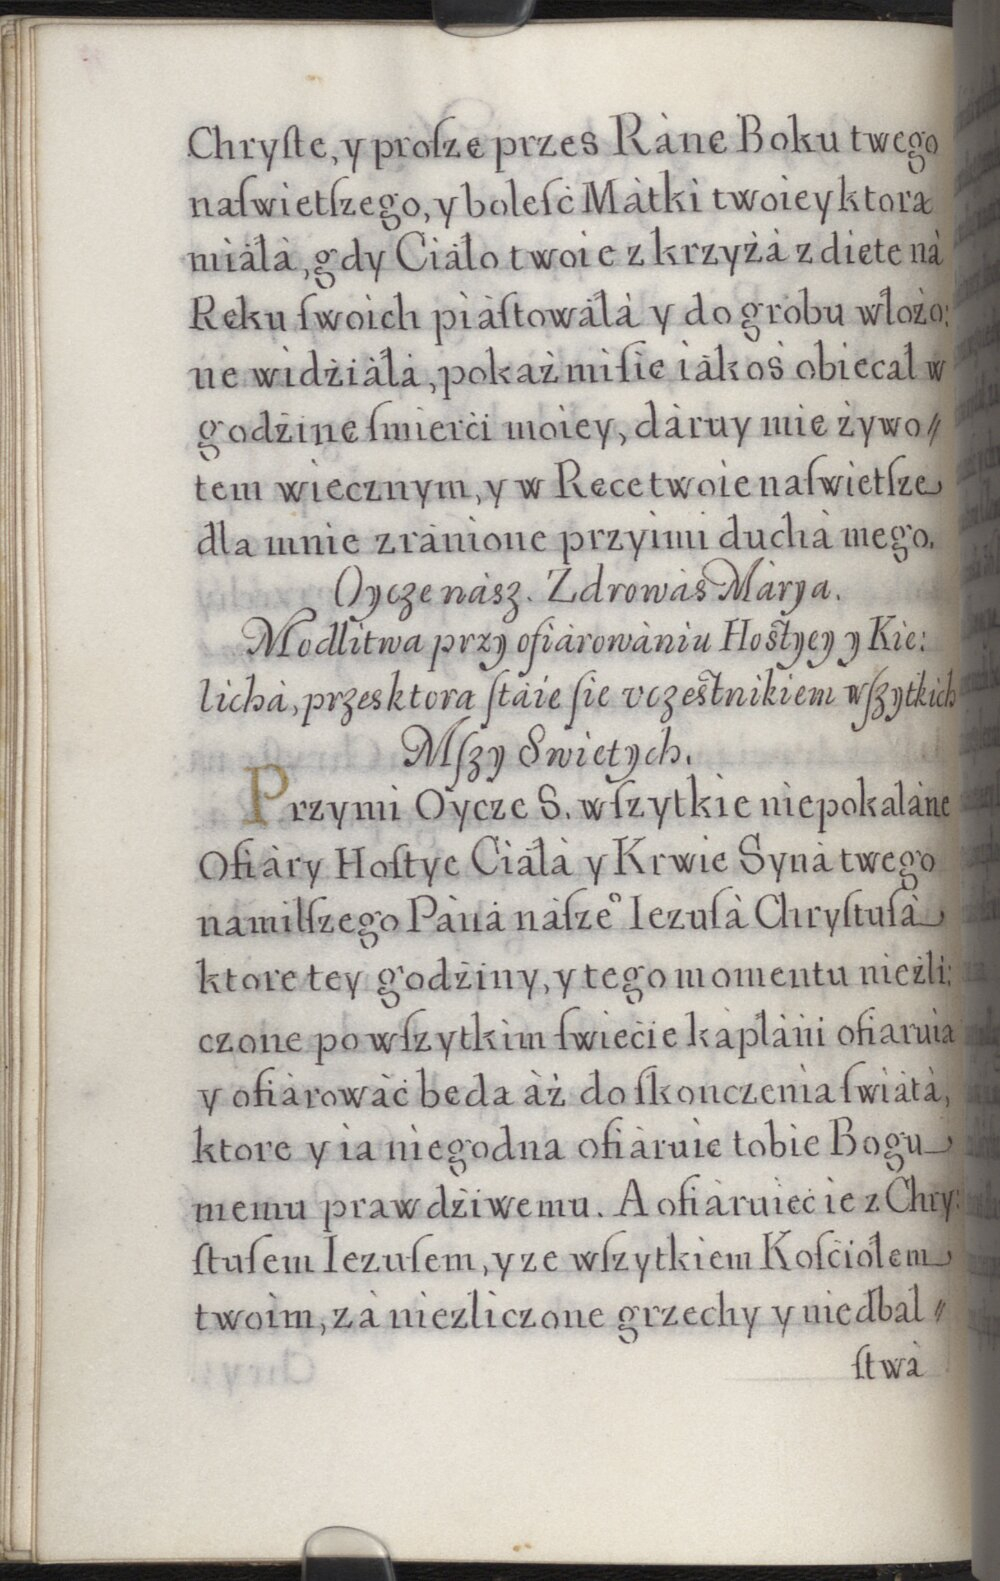 Chryſte, y proſze przes Ràne Boku twego
naſwietſzego, y boleſć Màtki twoiey ktora
miàłà, gdy Ciàło twoie z krzyżà zdiete nà
Reku ſwoich piàſtowàłà y do grobu włożo:
ne widźiàłà, pokaż mi ſie iàkoś obiecał w
godźine ſmierći moiey, dàruy mie żywo〃
tem wiecznym, y w Rece twoie naſwietſze
dla mnie zrànione przyimi duchà mego.
Oycze nàsz. Zdrowàs Màrya.
Modlitwa przy ofiàrowàniu Hoſtyey y Kie:
lichà, przes ktora ſtàie ſie vczeſtnikiem wſzytkich
Mſzy Swietych.
Przymi Oycze S. wſzytkie niepokalàne
Ofiàry Hoſtye Ciàłà y Krwie Synà twego
namilſzego Pànà nàſzeº Iezuſà Chryſtuſà
ktore tey godźiny, y tego momentu nieźli:
czone po wſzytkim ſwiećie kàpłàni ofiaruia
y ofiàrowàć beda àż do ſkonczenia ſwiàtà,
ktore y ia niegodna ofiàruie tobie Bogu
memu prawdźiwemu. A ofiàruieć ie z Chry:
ſtuſem Iezuſem, y ze wſzytkiem Koſćiołem
twoim, zà niezliczone grzechy y niedbal〃
ſtwà